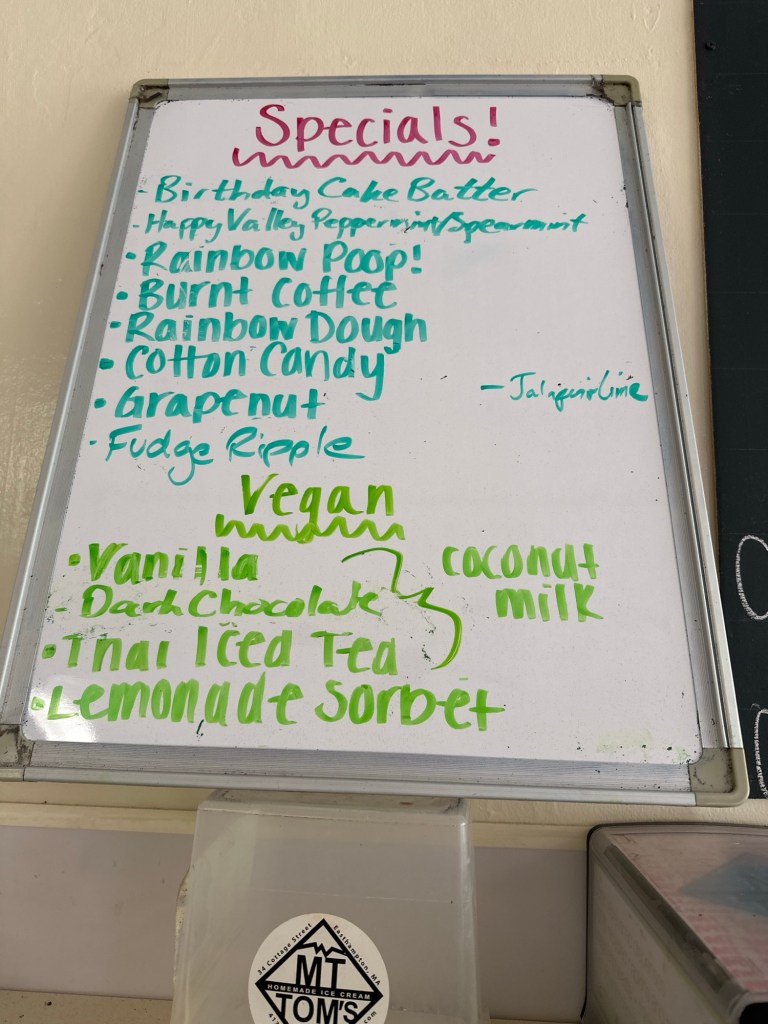 Specials!
- Birthday Cake Batter
- Happy Valley Peppermint/Spearmint
• Rainbow Poop!
• Burnt Coffee
• Rainbow Dough
• Cotton Candy
• Grapenut
- Fudge Ripple
Vegan
• Vanilla
- Dark Chocolate
• Thai Iced Tea
coconut
milk
• Lemonade Sorbet
34 Cottage Street Easthampton, MA
MT
HOMEMADE ICE CREAM
TOM'S